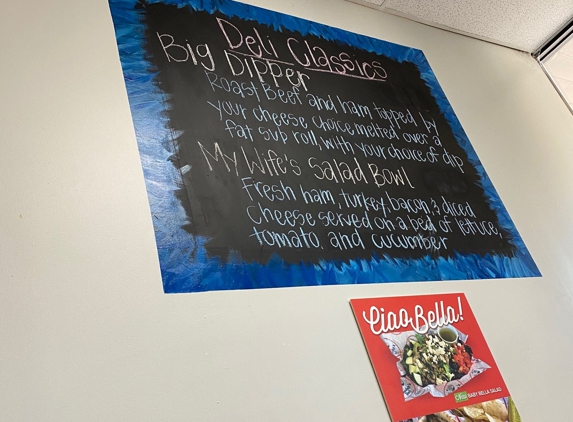 Deli Classics
Big Dipper
Roast Beef and ham topped by
your cheese choice melted over a
fat sub roll, with your choice of dip
My Wife's Salad Bowl
Fresh ham, turkey, bacon, & diced
cheese served on a bed of lettuce,
tomato, and cucumber
Ciao Bella!
BABY BELLA SALAD